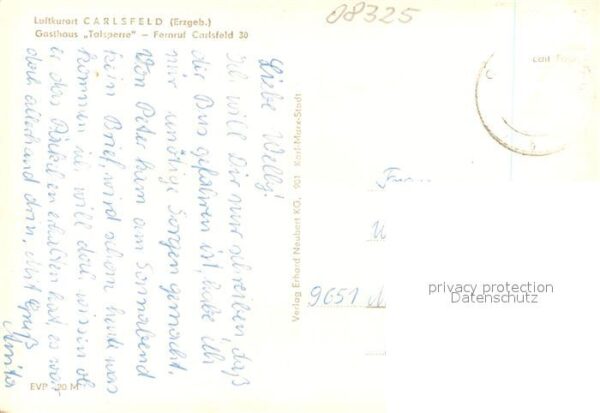 08325
Luftkurort CARLSFELD (Erzgeb.)
Gasthaus „Talsperre" — Fernruf Carlsfeld 30
Liebe Welly!
Ich will Dir nur schreiben, daß
der Bus gefahren ist, habe ich
mir unnötige Sorgen gemacht.
Von Peter kam am Sonnabend
kein Brief, wird schon heute was
kommen, ich will doch wissen ob
er das Päckchen erhalten hat, es war
doch allerhand dran, viel Gruß
Anita
Verlag Erhard Neubert KG, 901 Karl-Marx-Stadt
EVP -20 M
Frau
9651
privacy protection
Datenschutz